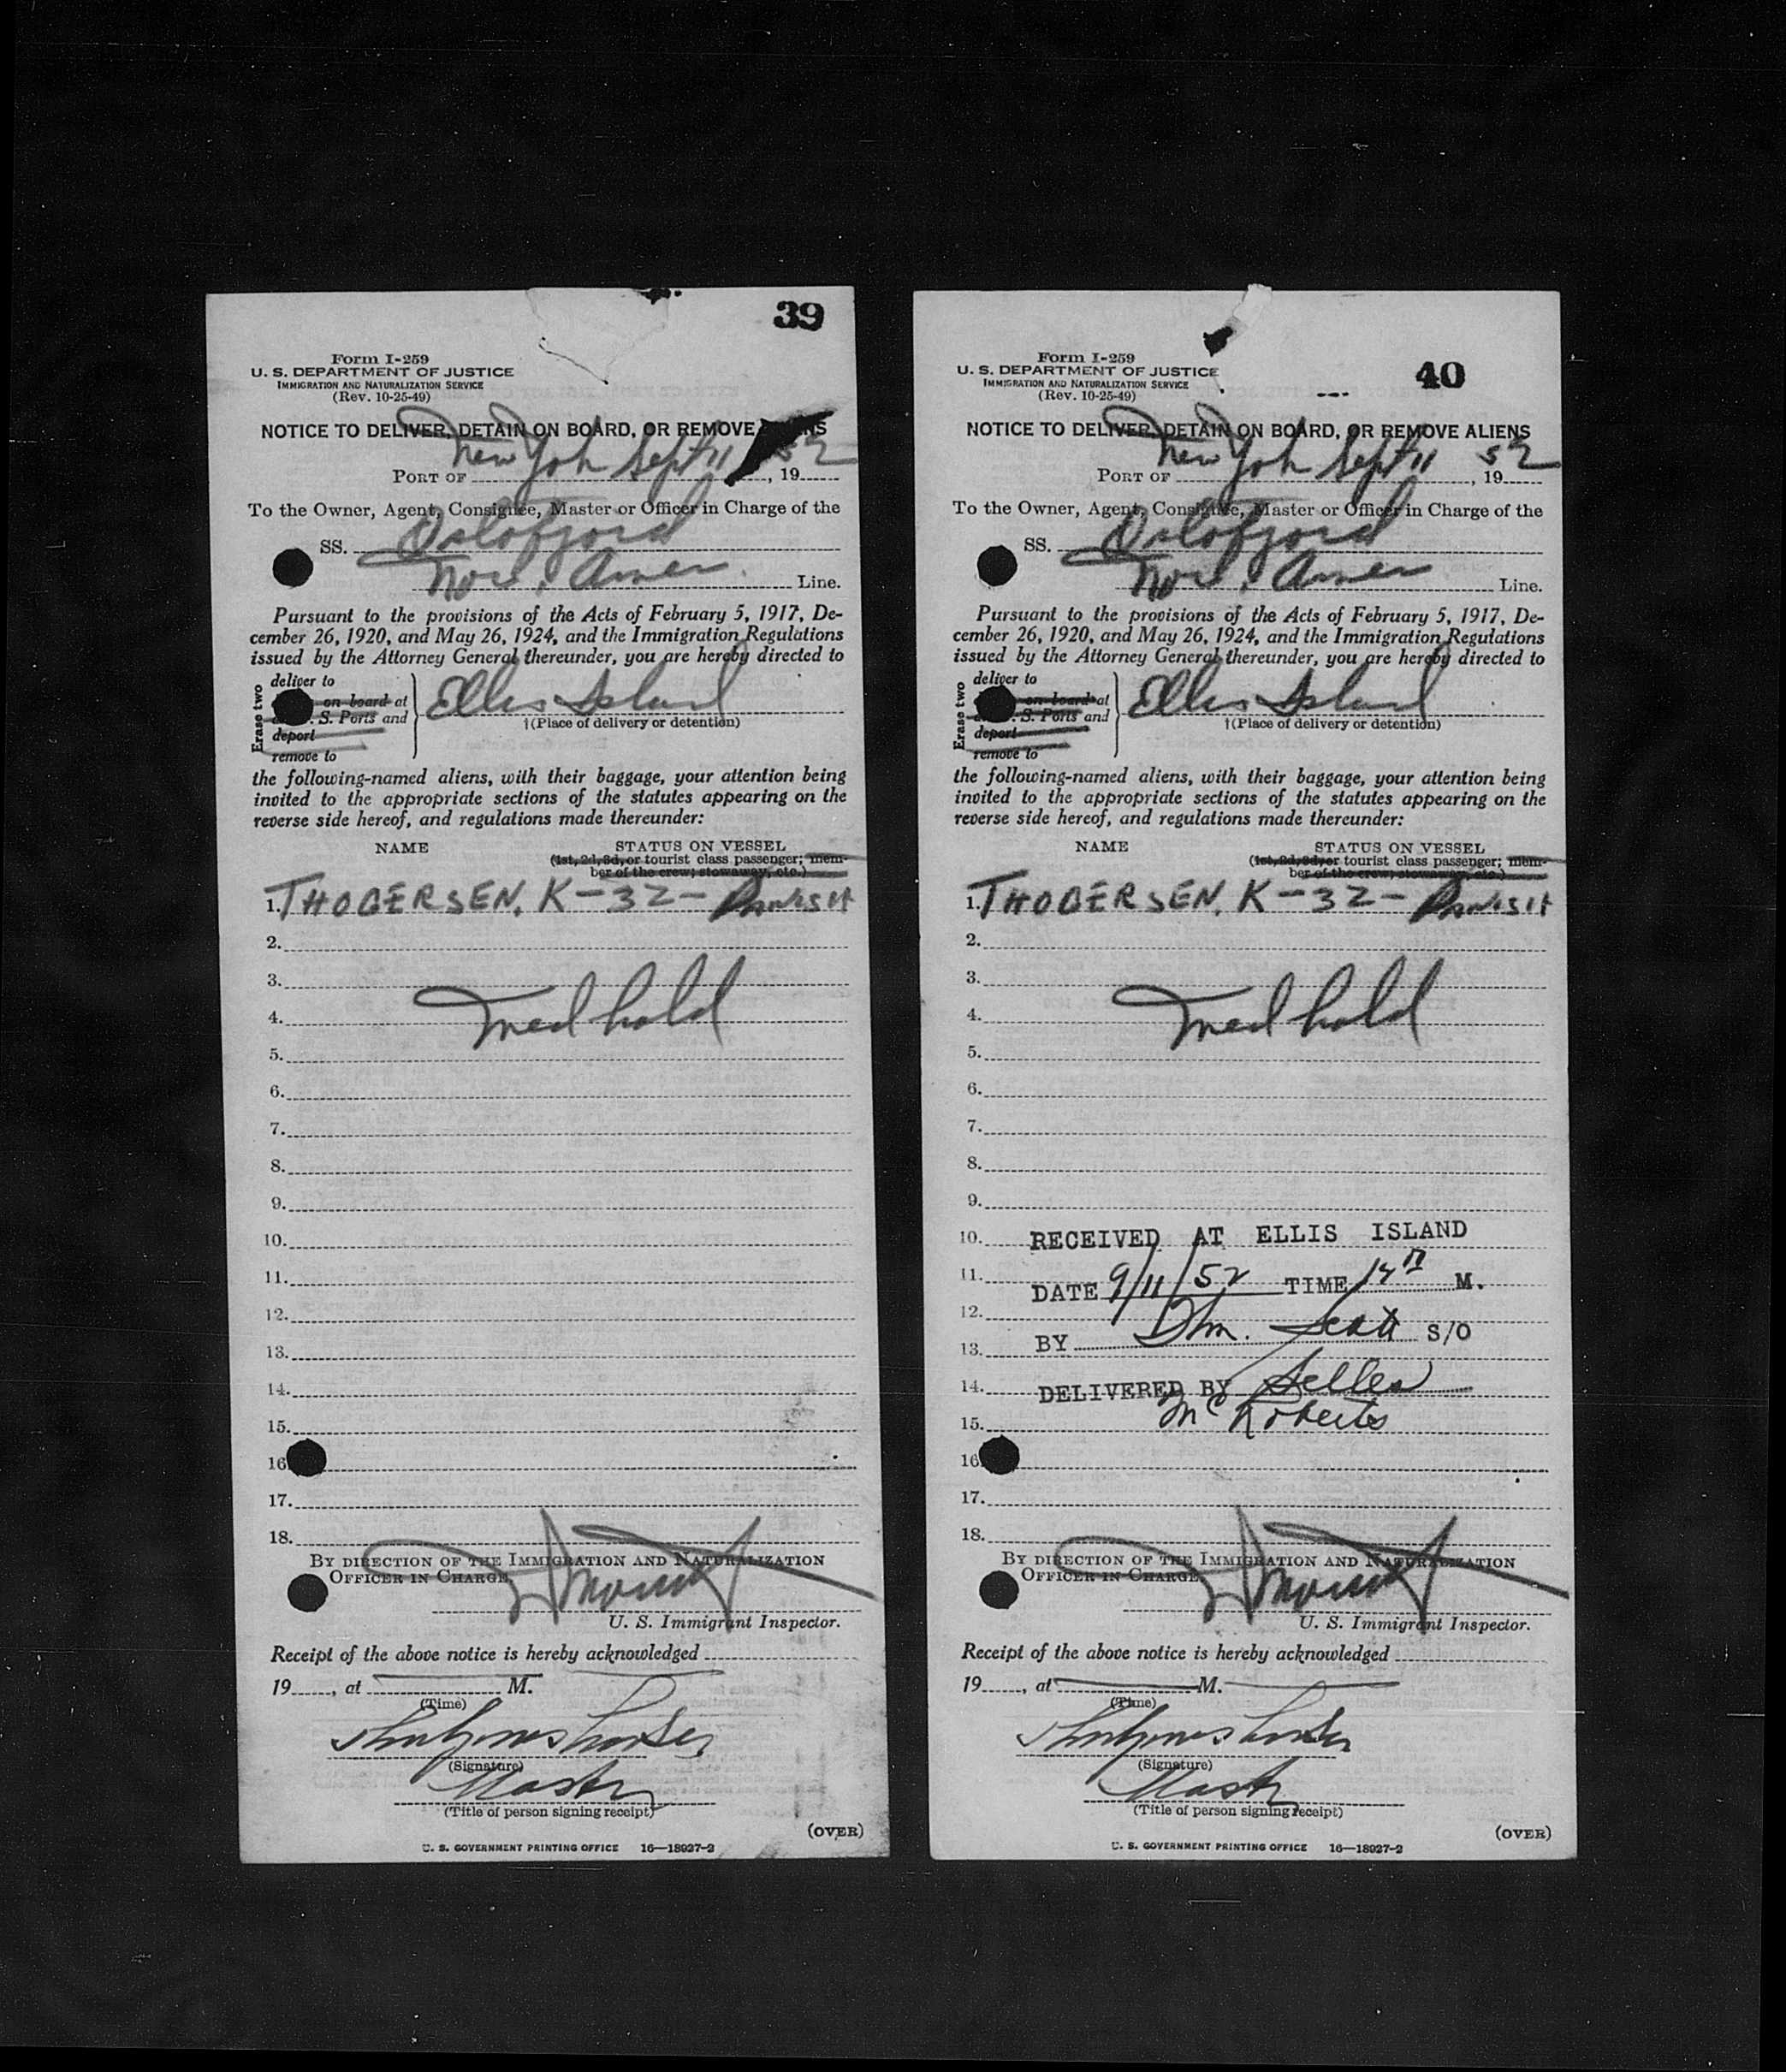 39
Form I-259
U. S. DEPARTMENT OF JUSTICE
IMMIGRATION AND NATURALIZATION SERVICE
(Rev. 10-25-49)
NOTICE TO DELIVER, DETAIN ON BOARD, OR REMOVE ALIENS
PORT OF New York Sept 11, 1952
To the Owner, Agent, Consignee, Master or Officer in Charge of the
SS. Oslofjord
Nor. Amer. Line.
Pursuant to the provisions of the Acts of February 5, 1917, De-
cember 26, 1920, and May 26, 1924, and the Immigration Regulations
issued by the Attorney General thereunder, you are hereby directed to
Erase two
deliver to
on board at
S. Ports and
deport
remove to
Ellis Island
†(Place of delivery or detention)
the following-named aliens, with their baggage, your attention being
invited to the appropriate sections of the statutes appearing on the
reverse side hereof, and regulations made thereunder:
NAME STATUS ON VESSEL
(1st, 2d, 3d, or tourist class passenger; mem-
ber of the crew; stowaway, etc.)
1. THOGERSEN, K-32-
2.
3.
4. Med hold
5.
6.
7.
8.
9.
10.
11.
12.
13.
14.
15.
16
17.
18.
BY DIRECTION OF THE IMMIGRATION AND NATURALIZATION
OFFICER IN CHARGE,
U. S. Immigrant Inspector.
Receipt of the above notice is hereby acknowledged
19, at M.
(Time)
(Signature)
Master
(Title of person signing receipt)
(OVER)
U. S. GOVERNMENT PRINTING OFFICE 16—18927-2
40
Form I-259
U. S. DEPARTMENT OF JUSTICE
IMMIGRATION AND NATURALIZATION SERVICE
(Rev. 10-25-49)
NOTICE TO DELIVER, DETAIN ON BOARD, OR REMOVE ALIENS
PORT OF New York Sept 11, 1952
To the Owner, Agent, Consignee, Master or Officer in Charge of the
SS. Oslofjord
Nor. Amer Line.
Pursuant to the provisions of the Acts of February 5, 1917, De-
cember 26, 1920, and May 26, 1924, and the Immigration Regulations
issued by the Attorney General thereunder, you are hereby directed to
Erase two
deliver to
on board at
S. Ports and
deport
remove to
Ellis Island
†(Place of delivery or detention)
the following-named aliens, with their baggage, your attention being
invited to the appropriate sections of the statutes appearing on the
reverse side hereof, and regulations made thereunder:
NAME STATUS ON VESSEL
(1st, 2d, 3d, or tourist class passenger; mem-
ber of the crew; stowaway, etc.)
1. THOGERSEN, K-32-
2.
3.
4. Med hold
5.
6.
7.
8.
9.
10. RECEIVED AT ELLIS ISLAND
11. DATE 9/11/52 TIME M.
12.
13. BY Wm. Scott S/O
14. DELIVERED BY Selles
15. McRoberts
16
17.
18.
BY DIRECTION OF THE IMMIGRATION AND NATURALIZATION
OFFICER IN CHARGE,
U. S. Immigrant Inspector.
Receipt of the above notice is hereby acknowledged
19, at M.
(Time)
(Signature)
Master
(Title of person signing receipt)
(OVER)
U. S. GOVERNMENT PRINTING OFFICE 16—18927-2